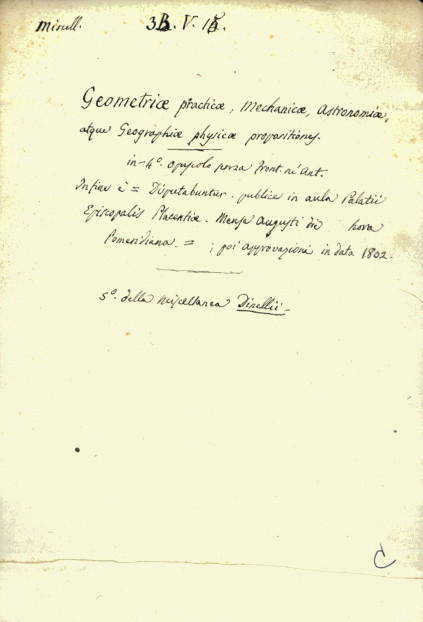 Miscell. 3B. V. 18.
Geometriæ practicæ, Mechanicæ, Astronomiæ,
atque Geographiæ physicæ propositiones.
in-4º. opuscolo senza front. nè Ant.
Infine è = Disputabuntur publice in aula Palatii
Episcopalis Placentiæ. Mense Augusti die hora
Pomeridiana = ; poi approvazioni in data 1802.
5º. della miscellanea Dinellii
C